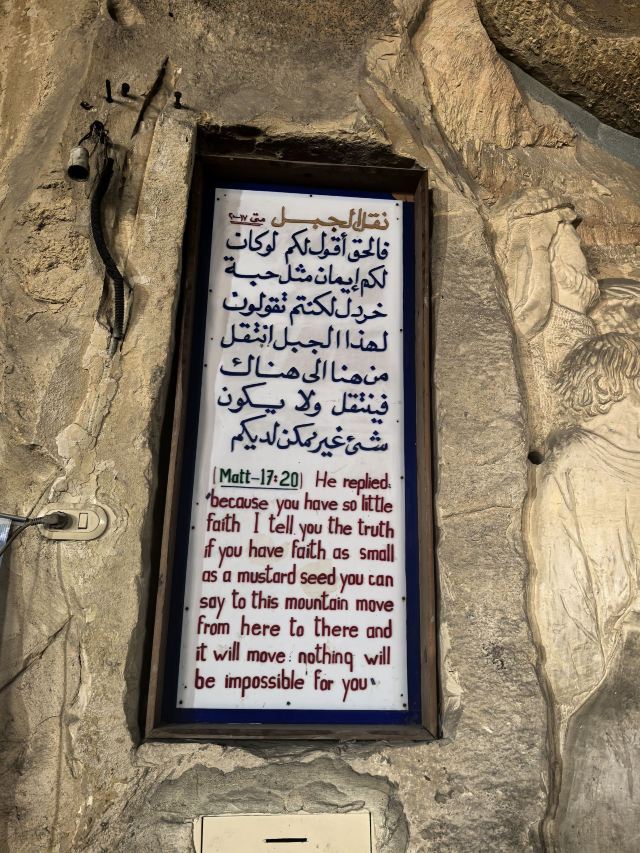 نقل الجبل متى ١٧-٢٠
فالحق أقول لكم لوكان
لكم إيمان مثل حبة
خردل لكنتم تقولون
لهذا الجبل انتقل
من هنا الى هناك
فينتقل ولا يكون
شئ غير ممكن لديكم
(Matt-17:20) He replied:
because you have so little
faith I tell you the truth
if you have faith as small
as a mustard seed you can
say to this mountain move
from here to there and
it will move nothing will
be impossible for you